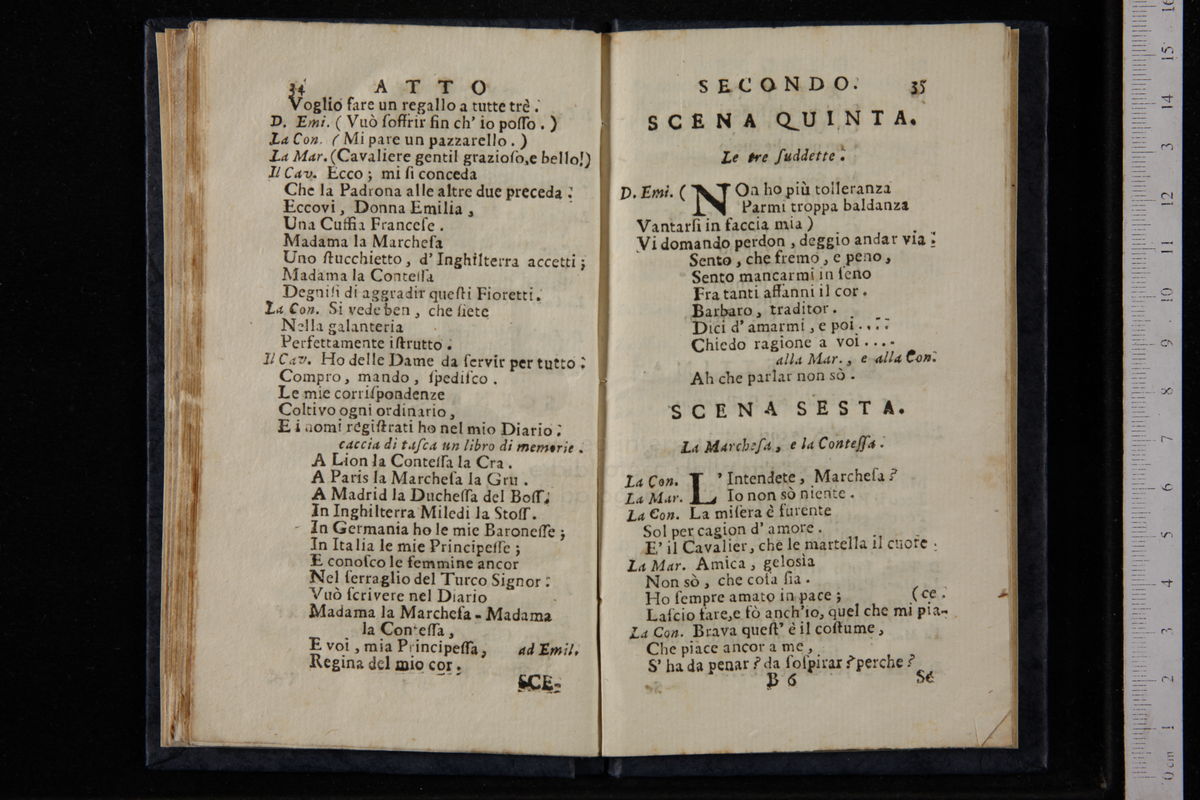 34 ATTO
Voglio fare un regallo a tutte trè.
D. Emi. (Vuò ſoffrir fin ch' io poſſo.)
La Con. (Mi pare un pazzarello.)
La Mar. (Cavaliere gentil grazioſo,e bello!)
Il Cav. Ecco; mi ſi conceda
Che la Padrona alle altre due preceda:
Eccovi, Donna Emilia,
Una Cuffia Franceſe.
Madama la Marcheſa
Uno ſtucchietto, d'Inghilterra accetti;
Madama la Conteſſa
Degniſi di aggradir queſti Fioretti.
La Con. Si vede ben, che ſiete
Nella galanteria
Perfettamente iſtrutto.
Il Cav. Ho delle Dame da ſervir per tutto:
Compro, mando, ſpediſco.
Le mie corriſpondenze
Coltivo ogni ordinario,
E i nomi regiſtrati ho nel mio Diario:
caccia di taſca un libro di memorie.
A Lion la Conteſſa la Cra.
A Parìs la Marcheſa la Gru.
A Madrid la Ducheſſa del Boſſ.
In Inghilterra Miledi la Stoſſ.
In Germania ho le mie Baroneſſe;
In Italia le mie Principeſſe;
E conoſco le femmine ancor
Nel ſerraglio del Turco Signor:
Vuò ſcrivere nel Diario
Madama la Marcheſa - Madama
la Conteſſa,
E voi, mia Principeſſa, ad Emil.
Regina del mio cor.
SCE-
SECONDO. 35
SCENA QUINTA.
Le tre ſuddette.
D. Emi. (NOn ho più tolleranza
Parmi troppa baldanza
Vantarſi in faccia mia)
Vi domando perdon, deggio andar via:
Sento, che fremo, e peno,
Sento mancarmi in ſeno
Fra tanti affanni il cor.
Barbaro, traditor.
Dici d'amarmi, e poi....
Chiedo ragione a voi....
alla Mar., e alla Con.
Ah che parlar non sò.
SCENA SESTA.
La Marcheſa, e la Conteſſa.
La Con. L'Intendete, Marcheſa?
La Mar. Io non sò niente.
La Con. La miſera è furente
Sol per cagion d'amore.
E' il Cavalier, che le martella il cuore.
La Mar. Amica, gelosìa
Non sò, che coſa ſia.
Ho ſempre amato in pace; (ce.
Laſcio fare,e fò anch'io, quel che mi pia-
La Con. Brava queſt' è il coſtume,
Che piace ancor a me,
S' ha da penar? da ſoſpirar? perche?
B 6 Se
0 cm 1 2 3 4 5 6 7 8 9 10 11 12 3 14 15 16